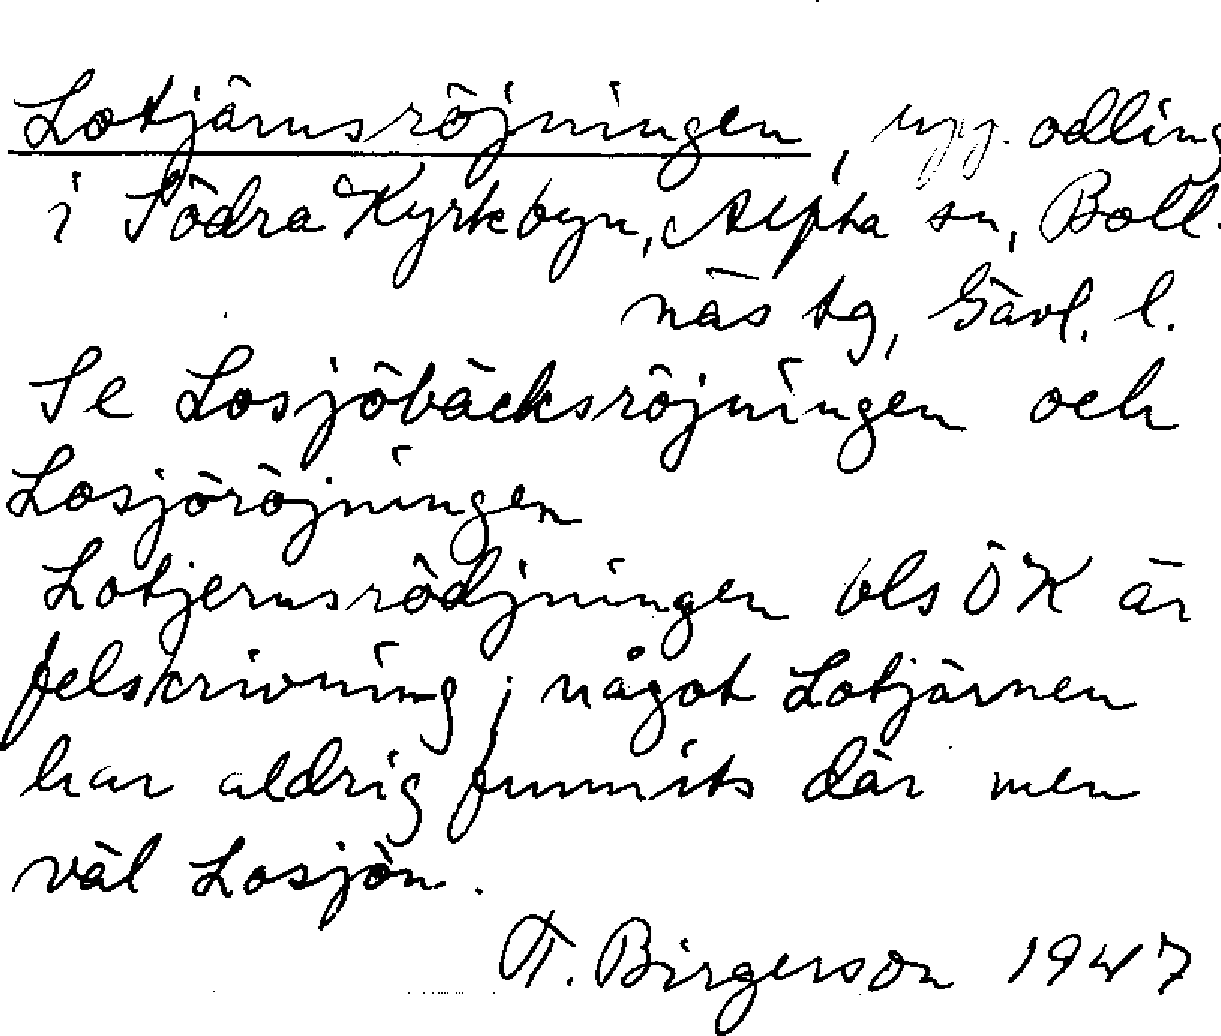 Lotjärnsröjningen, ugg. odling
i Södra Kyrkbyn, Alfta sn, Boll-
näs tg, Gävl. l.
Se Losjöbäcksröjningen och
Losjöröjningen
Lotjernsrödjningen bls ÖK är
felskrivning; något Lotjärnen
har aldrig funnits där men
väl Losjön.
F. Birgerson 1947